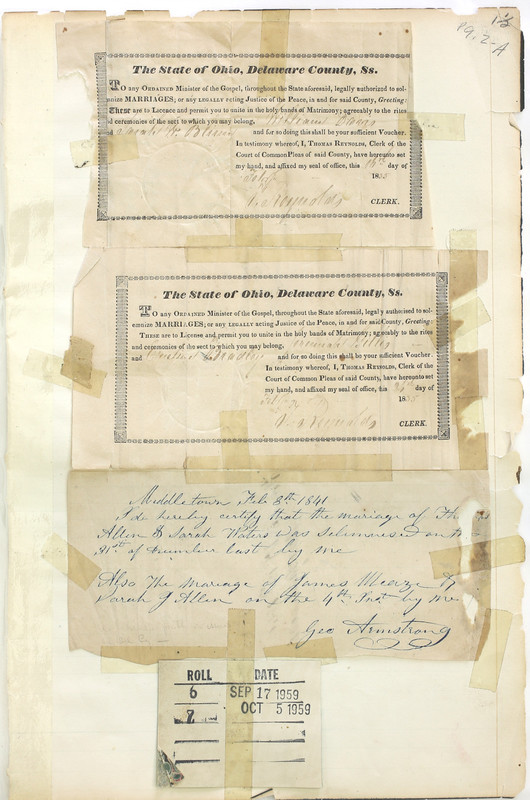 1½
Pg. 2-A
The State of Ohio, Delaware County, Ss.
TO any ORDAINED Minister of the Gospel, throughout the State aforesaid, legally authorized to sol-
emnize MARRIAGES; or any LEGALLY acting Justice of the Peace, in and for said County, Greeting:
These are to Licence and permit you to unite in the holy bands of Matrimony; agreeably to the rites
and ceremonies of the sect to which you may belong, William
and Sarah and for so doing this shall be your sufficient Voucher.
In testimony whereof, I, THOMAS REYNOLDS, Clerk of the
Court of Common Pleas of said County, have hereunto set
my hand, and affixed my seal of office, this 16th day of
1835
T. Reynolds CLERK.
The State of Ohio, Delaware County, Ss.
TO any ORDAINED Minister of the Gospel, throughout the State aforesaid, legally authorized to sol-
emnize MARRIAGES; or any LEGALLY acting Justice of the Peace, in and for said County, Greeting:
THESE are to License and permit you to unite in the holy bands of Matrimony; agreeably to the rites
and ceremonies of the sect to which you may belong,
and Bradley and for so doing this shall be your sufficient Voucher.
In testimony whereof, I, THOMAS REYNOLDS, Clerk of the
Court of Common Pleas of said County, have hereunto set
my hand, and affixed my seal of office, this day of
1835
T. Reynolds CLERK.
Middletown Feb 8th 1841
I do hereby certify that the mariage of
Allen & Sarah Waters was Solimnised on
31st of last by me
Also The mariage of James &
Sarah J Allen on the 4th Inst by me
Geo Armstrong
ROLL DATE
6 SEP 17 1959
7 OCT 5 1959